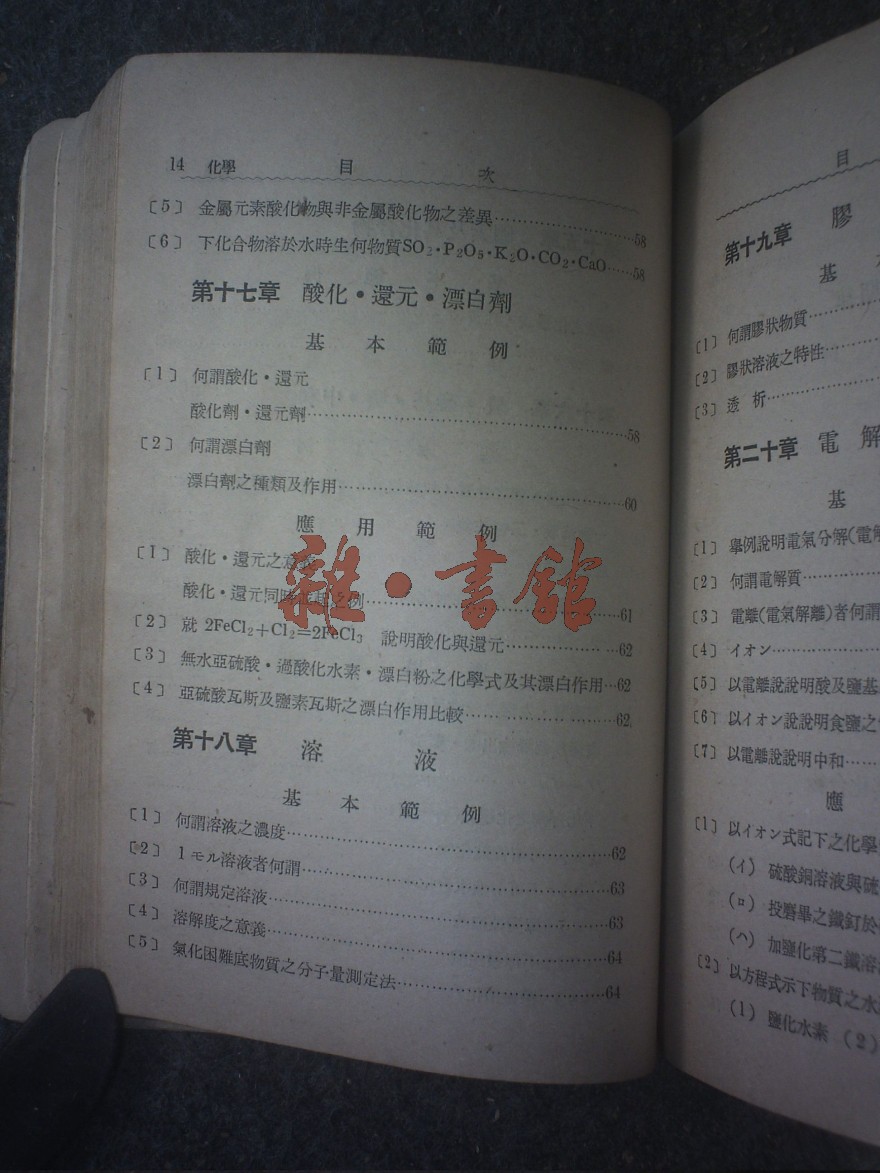 14 化學 目 次
〔5〕 金屬元素酸化物與非金屬酸化物之差異……………58
〔6〕 下化合物溶於水時生何物質SO₂・P₂O₅・K₂O・CO₂・CaO……58
第十七章 酸化・還元・漂白劑
基 本 範 例
〔1〕 何謂酸化・還元
酸化劑・還元劑……………58
〔2〕 何謂漂白劑
漂白劑之種類及作用……………60
應 用 範 例
〔1〕 酸化・還元之意義
酸化・還元同時並起之例……………61
〔2〕 就 2FeCl₂+Cl₂=2FeCl₃ 說明酸化與還元……………62
〔3〕 無水亞硫酸・過酸化水素・漂白粉之化學式及其漂白作用…62
〔4〕 亞硫酸瓦斯及鹽素瓦斯之漂白作用比較……………62
第十八章 溶 液
基 本 範 例
〔1〕 何謂溶液之濃度……………62
〔2〕 1モル溶液者何謂……………63
〔3〕 何謂規定溶液……………63
〔4〕 溶解度之意義……………64
〔5〕 氣化困難底物質之分子量測定法……………64
雜・書館
目
第十九章 膠
基 本
〔1〕 何謂膠狀物質……………
〔2〕 膠狀溶液之特性……………
〔3〕 透 析……………
第二十章 電 解
基
〔1〕 舉例說明電氣分解(電解
〔2〕 何謂電解質……………
〔3〕 電離(電氣解離)者何謂
〔4〕 イオン……………
〔5〕 以電離說說明酸及鹽基
〔6〕 以イオン說說明食鹽之
〔7〕 以電離說說明中和……
應
〔1〕 以イオン式記下之化學
(イ) 硫酸銅溶液與硫
(ロ) 投磨畢之鐵釘於
(ハ) 加鹽化第二鐵溶
〔2〕 以方程式示下物質之水
(1) 鹽化水素 (2)